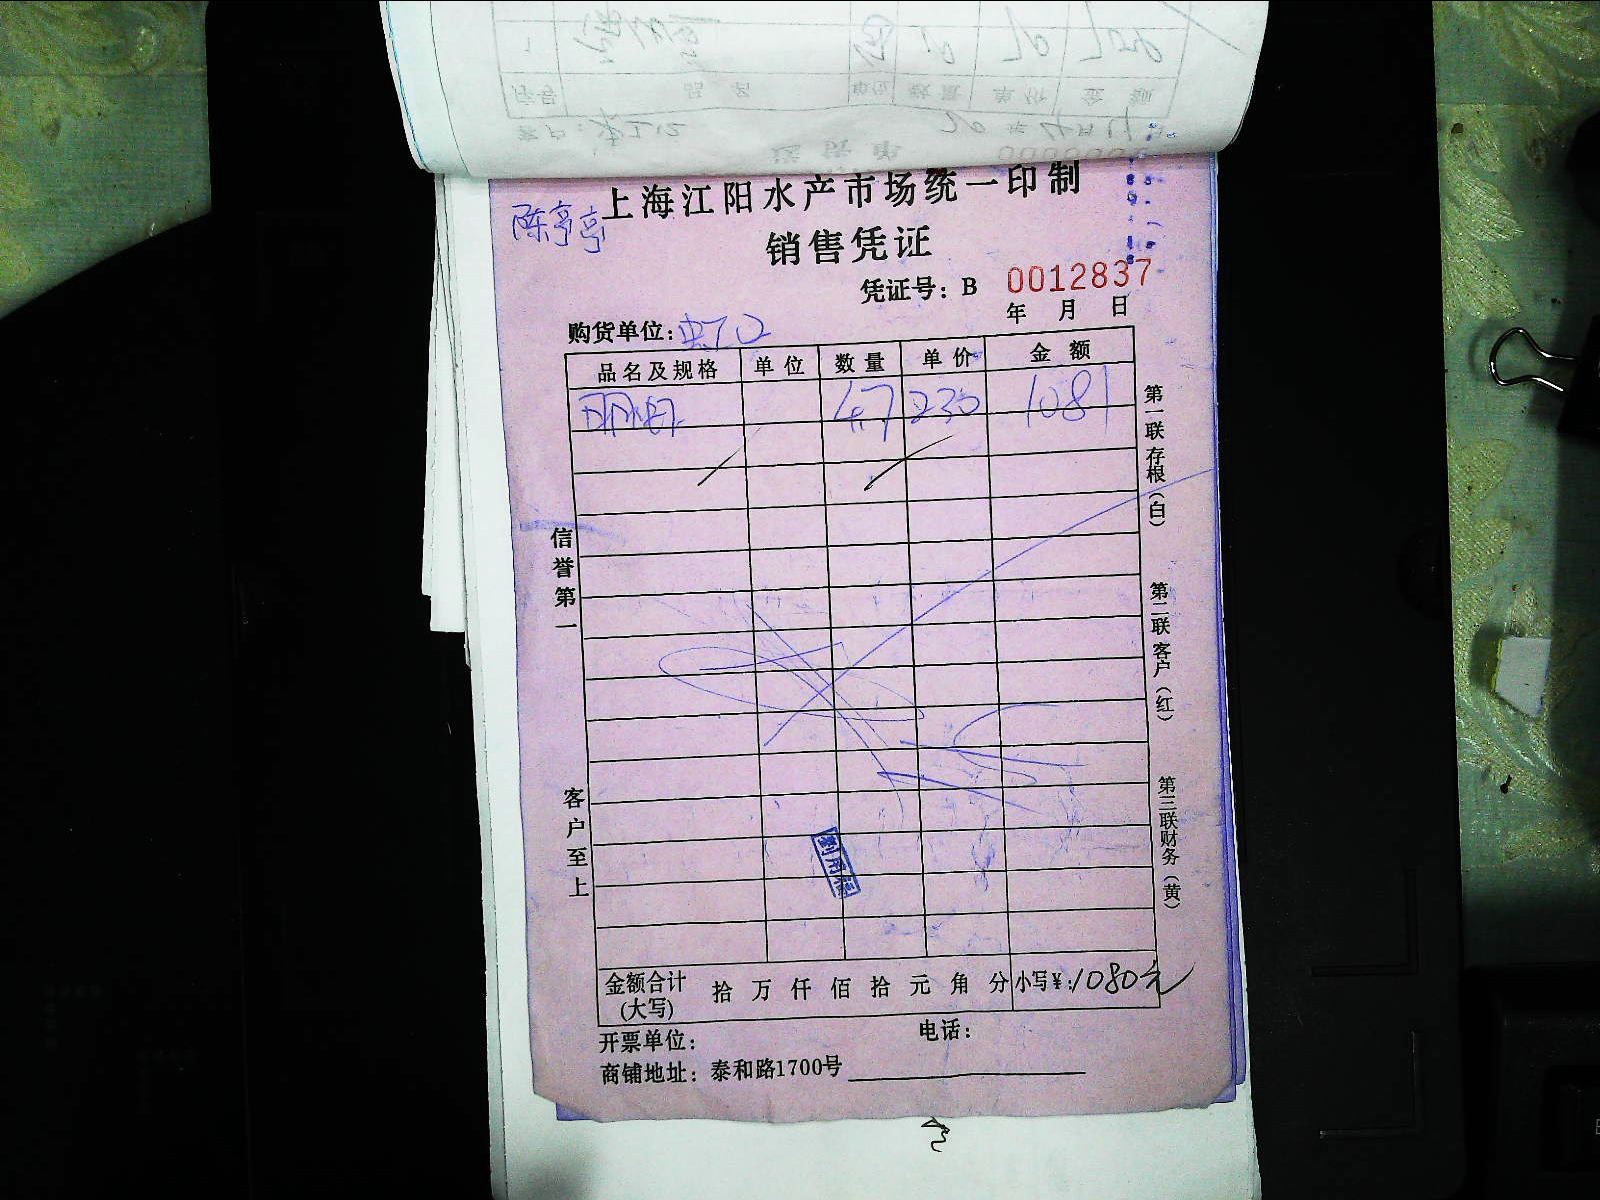 上海江阳水产市场统一印制
陈亭亭
销售凭证
凭证号：B 0012837
年 月 日
购货单位：虹口
品名及规格 单位 数量 单价 金额
明虾 4.7 230 1081
第一联存根（白）
第二联客户（红）
第三联财务（黄）
信誉第一
客户至上
金额合计(大写) 拾 万 仟 佰 拾 元 角 分 小写¥：1080元
开票单位： 电话：
商铺地址：泰和路1700号